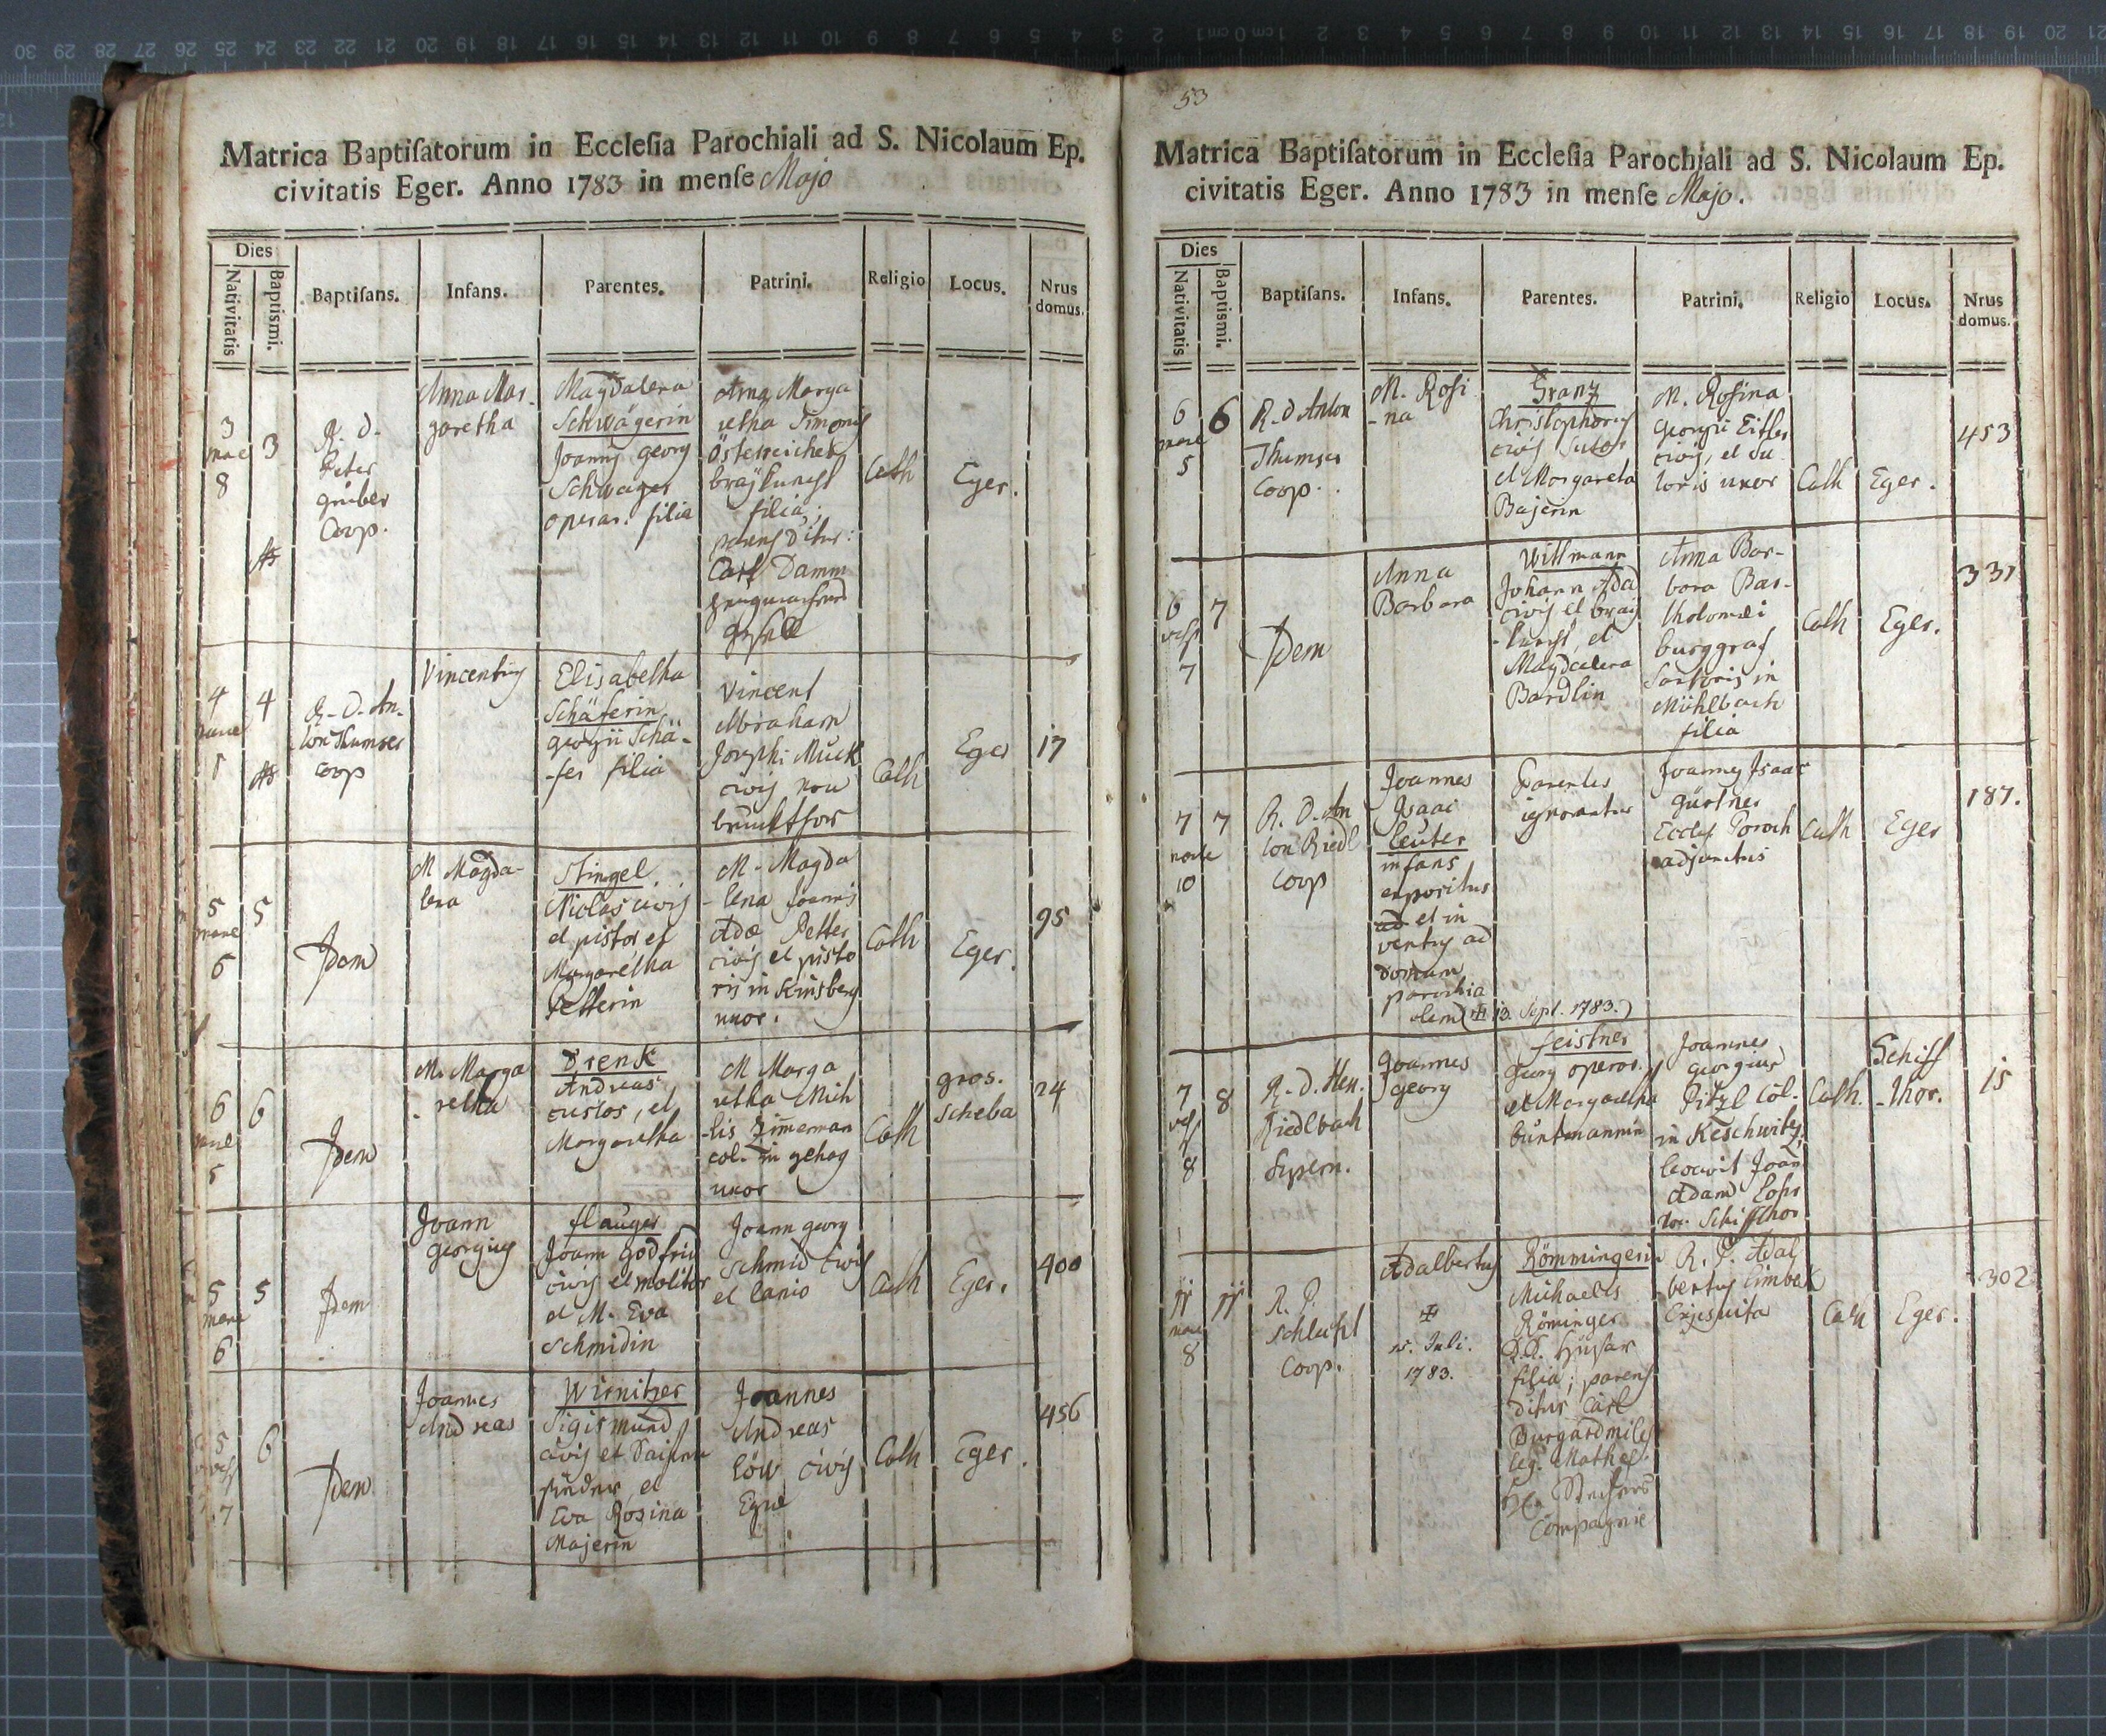 Matrica Baptiſatorum in Eccleſia Parochiali ad S. Nicolaum Ep.
civitatis Eger. Anno 1783 in menſe Majo
Dies
Nativitatis
Baptismi.
Baptiſans.
Infans.
Parentes.
Patrini.
Religio
Locus.
Nrus
domus.
3
mane
8
3
R. D.
Peter
gruber
Coop.
Anna Mar-
garetha
Magdalena
Schwägerin
Joannis georg
Schwager
operar. filia
Anna Marga
retha Simonis
Österreicher
filia;
parens ditur:
Carl Damm
gesell
Cath
Eger.
4
mane
1
4
R. D. An-
ton Thumser
Coop
Vincentius
Elisabetha
Schäferin
georgii Schä-
fer filia
Vincent
Abraham
Josephi Mück
civis
Cath
Eger
17
5
mane
6
5
Idem
M Magda-
lena
Stingel
Niclas civis
et pistor et
Margaretha
Petterin
M. Magda
-lena Joannis
Adæ Petter
civis et pisto
ris in Kinsberg
uxor.
Cath
Eger.
95
6
mane
5
6
Idem
M. Marga
-retha
Drenk
Andreas
custos, et
Margaretha
M Marga
retha Mich
-lis Zimmerman
col. in gehag
uxor
Cath
gros.
scheba
24
5
mane
6
5
Idem
Joann
georgius
flauger
Joann godfrid
civis et molitor
et M. Eva
Schmidin
Joann georg
Schmid civis
et lanio
Cath
Eger.
400
5
vesp
7
6
Idem
Joannes
Andreas
Wirnitzer
Sigismund
civis et
et
Eva Rosina
Majerin
Joannes
Andreas
löw civis
Egræ
Cath
Eger.
456
53
Matrica Baptiſatorum in Eccleſia Parochiali ad S. Nicolaum Ep.
civitatis Eger. Anno 1783 in menſe Majo.
Dies
Nativitatis
Baptismi.
Baptiſans.
Infans.
Parentes.
Patrini.
Religio
Locus.
Nrus
domus.
6
mane
5
6
R. D Anton
Thumser
Coop.
M. Rosi
-na
Granz
Christophorus
civis sutor
et Margareta
Bajerin
M. Rosina
georgii Eitler
civis, et su
toris uxor
Cath
Eger.
453
6
vesp
7
7
Idem
Anna
Barbara
Willmann
Johann Ada
civis et bray
-kunst, et
Magdalena
Bardlin
Anna Bar-
bara Bar-
tholomæi
burggraf
Sartoris in
Mühlbach
filia
Cath
Eger.
331
7
nocte
10
7
R. D. An
ton Riedl
Coop
Joannes
Isaac
leuter
infans
expositus
ad et in
ventus ad
domum
parochia
lem (# 13. Sept. 1783.)
Parentes
ignorantur
Joannes Isaac
gürtner
Eccles Paroch
adjunctus
Cath
Eger
187.
7
vesp
8
8
R. D. Hen.
Riedlbach
Supern.
Joannes
georg
feistner
georg operar.
et Margaretha
buntmannin
Joannes
georgius
Pitzl col.
in Keschwitz
levavit Joan
Adam
Schiffthor
Cath.
Schiff
-thor.
15
11
mane
8
11
R. P.
Schlechl
Coop.
Adalbertus
#
15. Juli.
1783.
Römmingerin
Michaelis
Röminger
Husar
filia; parens
ditur Carl
Burgard miles
leg. Mathes.
Compagnie
R. P. Adal
bertus limbek
Exjesuita
Cath
Eger.
302